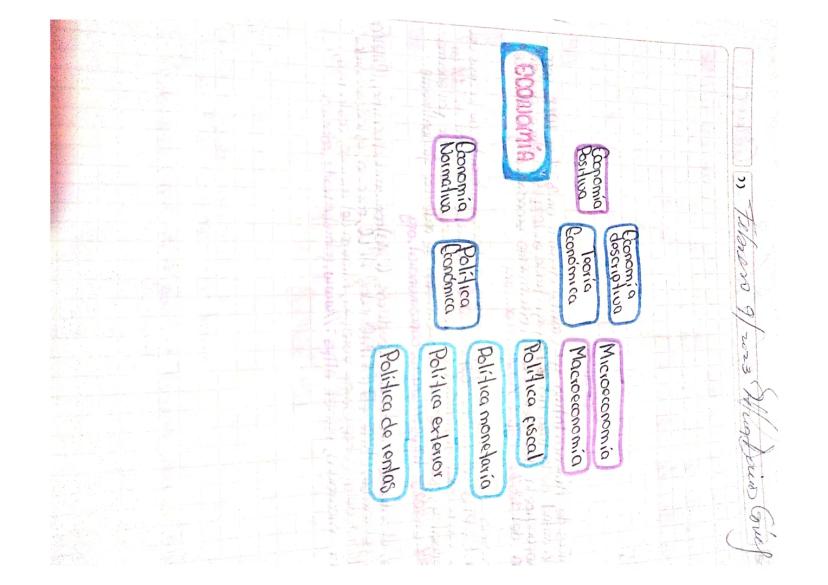 Febrero 9/2023
economía
Economía
Positiva
Economía
descriptiva
Teoría
Económica
Microeconomía
Macroeconomía
Economía
Normativa
Política
Económica
Política fiscal
Política monetaria
Política exterior
Política de rentas